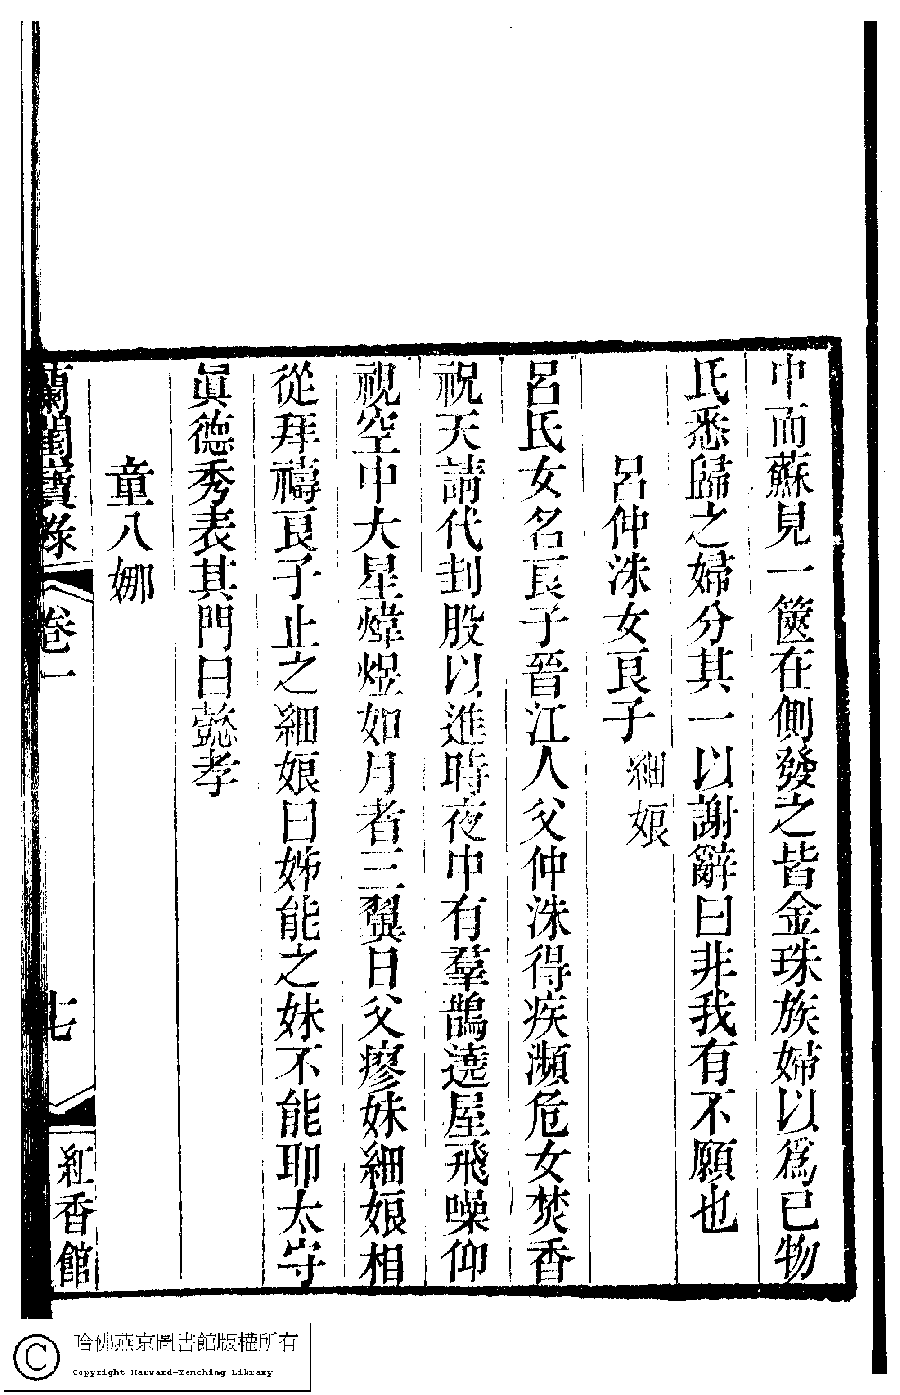 中而蘇見一篋在側發之皆金珠族婦以爲已物
氏悉歸之婦分其一以謝辭曰非我有不願也
呂仲洙女艮子 細娘
呂氏女名艮子晉江人父仲洙得疾瀕危女焚香
祝天請代刲股以進時夜中有羣鵲遶屋飛噪仰
視空中大星煒煜如月者三翼日父瘳妹細娘相
從拜禱艮子止之細娘曰姊能之妹不能耶太守
眞德秀表其門曰懿孝
童八娜
蘭閨寶錄 卷一 七 紅香館
哈佛燕京圖書館版權所有
Copyright Harvard-Yenching Library